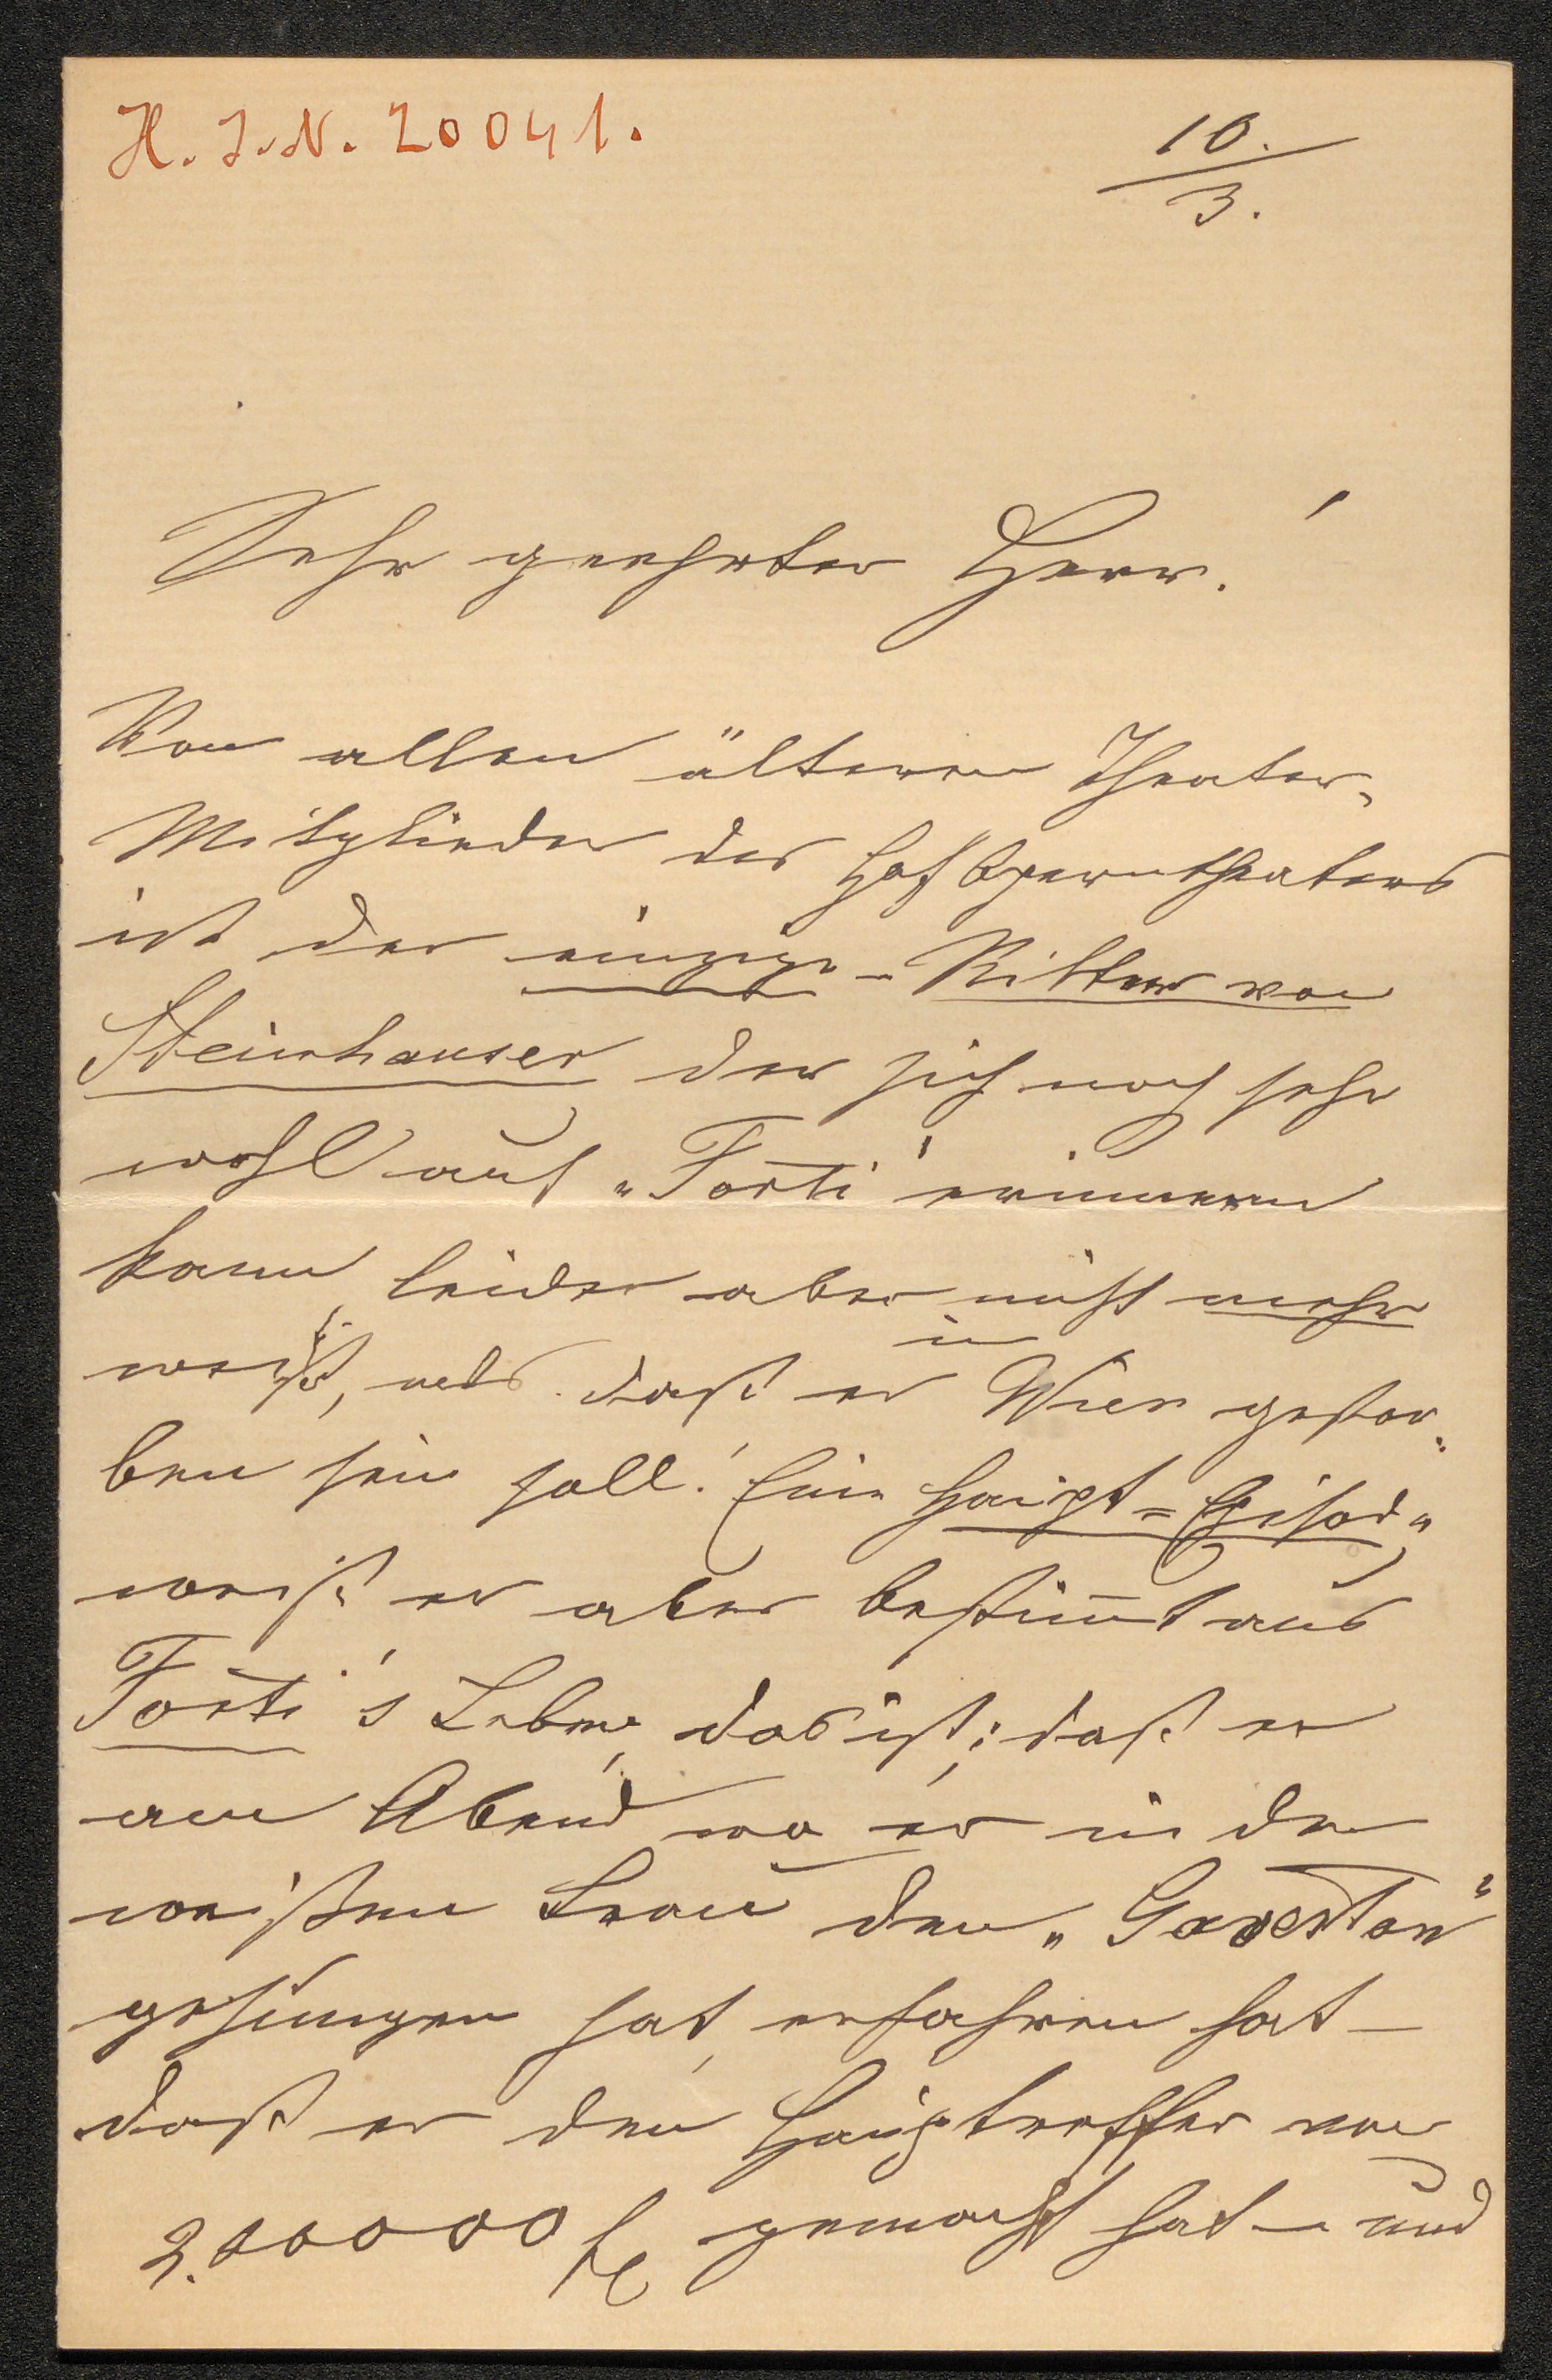 H. I. N. 20041.
10./3.
Sehr geehrter Herr!
Von allen älteren Theater-
Mitglieder des Hof Operntheaters
ist der einzige – Ritter von
Steinhauser der sich noch sehr
wohl auf „Forti“ erinnern
kann, leider aber nicht mehr
weiß, als daß er in Wien gestor-
ben sein soll! Eine Haupt=Episode
weiß er aber bestimt aus
Forti's Leben, das ist; daß er
am Abend wo er in der
weißen Frau den „Gaveston“
gesungen hat, erfahren hat –
daß er den Haupttreffer von
200000 fl gemacht hat – und